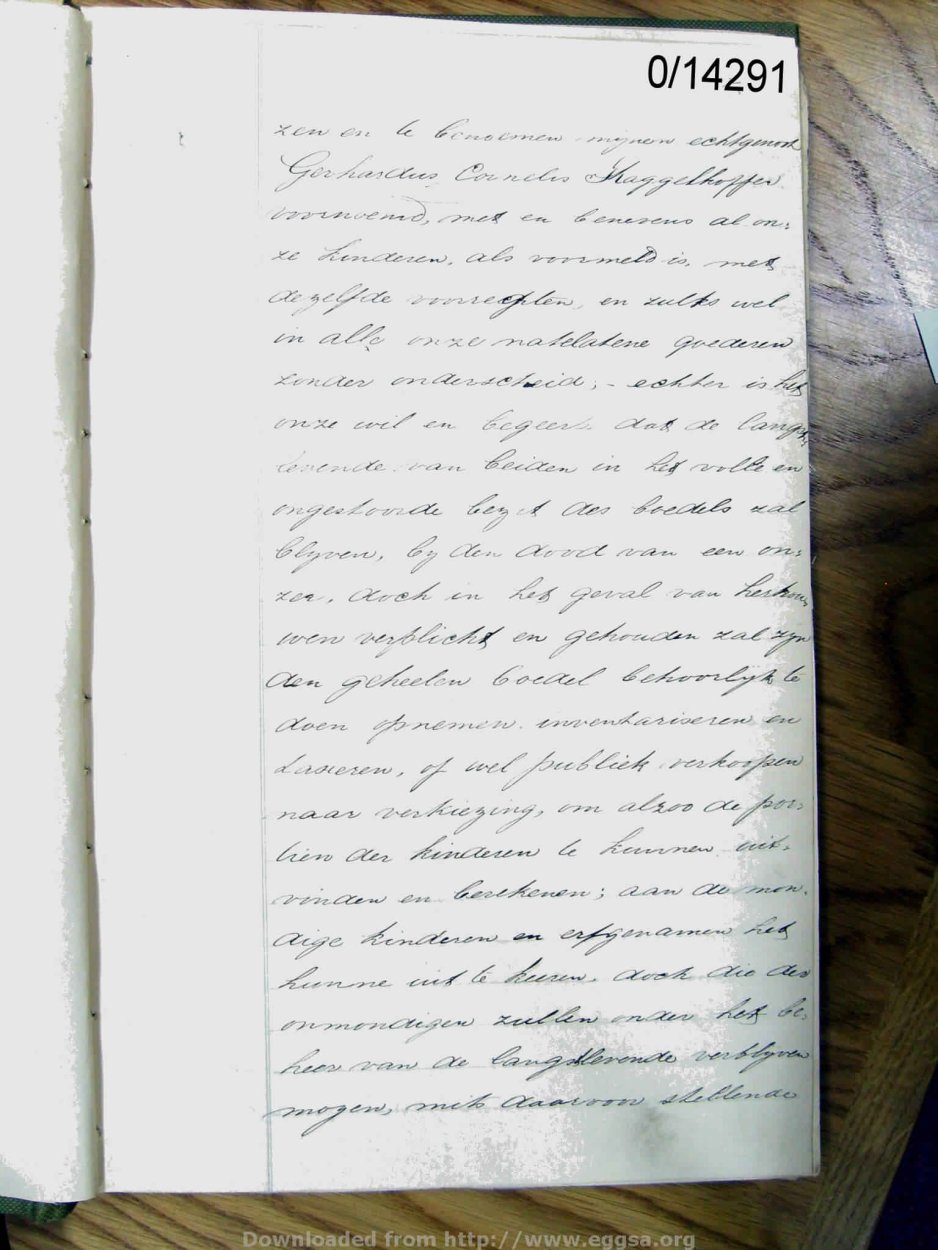 0/14291
zen en te benoemen mynen echtgenoot
Gerhardus Cornelis Haggelhoffer
voornoemd, met en benevens al on:
ze kinderen, als voormeld is, met
dezelfde voorrechten, en zulks wel
in alle onze natelatene goederen
zonder onderscheid; - echter is het
onze wil en begeerte dat de langst
levende van beiden in het volle en
ongestoorde bezit des boedels zal
blyven, by den dood van een on:
zer, doch in het geval van hertrou:
wen verplicht en gehouden zal zyn
den geheelen boedel behoorlyk te
doen opnemen inventariseren en
taxeren, of wel publiek verkoopen
naar verkiezing, om alzoo de por:
tien der kinderen te kunnen uit:
vinden en berekenen; aan de mon:
dige kinderen en erfgenamen het
hunne uit te keeren, doch die der
onmondigen zullen onder het be:
heer van de langstlevende verblyven
mogen, mits daarvoor stellende
Downloaded from http://www.eggsa.org